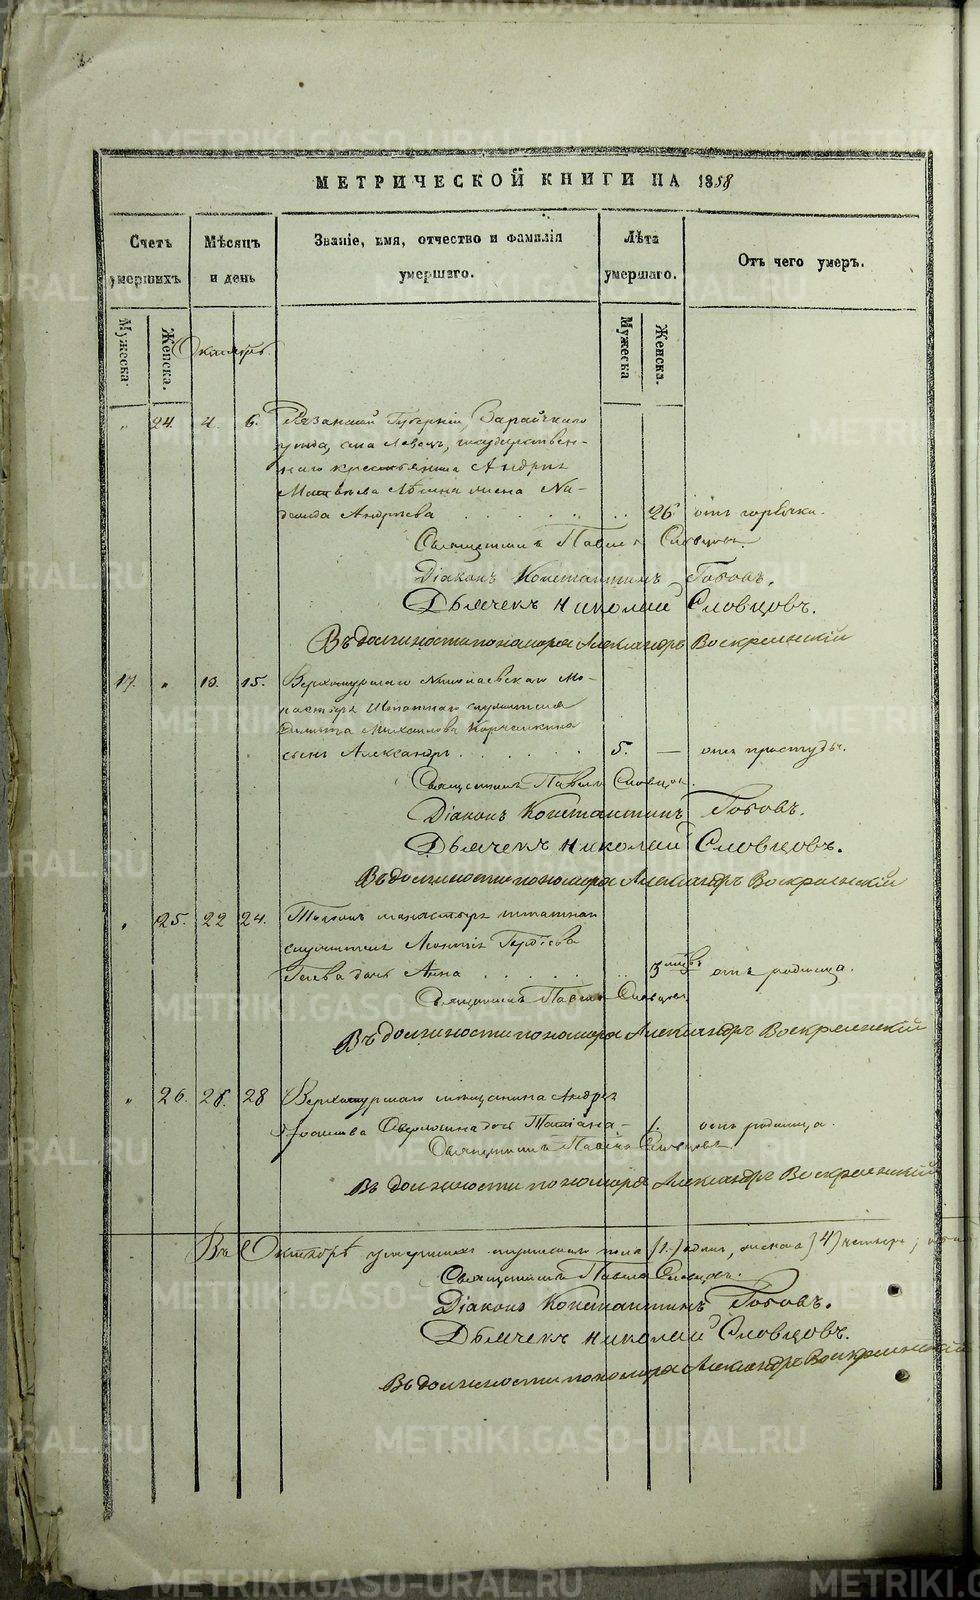 МЕТРИЧЕСКОЙ КНИГИ НА 1858
Счетъ умершихъ
Мѣсяцъ и день
Званіе, имя, отчество и фамилія умершаго.
Лѣта умершаго.
Отъ чего умеръ.
Мужеска.
Женска.
Мужеска
Женска.
Октябрь.
" 24. 4. 6. Рязанской Губерніи, Зарайскаго
уѣзда, села Ловецъ, государствен-
наго крестьянина Андрея
Матвѣева жена На-
дежда Андреева 26 отъ горячки.
Священникъ Павелъ Словцовъ.
Діаконъ Константинъ Поповъ.
Дьячекъ Николай Словцовъ.
Въ должности пономаря Александръ Воскресенскій
17. " 13. 15. Верхотурскаго Николаевскаго Мо-
настыря Штатнаго служителя
Михайлова
сынъ Александръ 5. — отъ простуды.
Священникъ Павелъ Словцовъ.
Діаконъ Константинъ Поповъ.
Дьячекъ Николай Словцовъ.
Въ должности пономаря Александръ Воскресенскій
" 25. 22 24. Того же монастыря штатнаго
служителя
дочь Анна 3 мѣс. отъ родимца.
Священникъ Павелъ Словцовъ
Въ должности пономаря Александръ Воскресенскій
" 26. 28 Верхотурскаго мѣщанина Андрея
дочь Татіана — 1. отъ родимца.
Священникъ Павелъ Словцовъ.
Въ должности пономаря Александръ Воскресенскій
Въ Октябрѣ умершихъ мужескаго пола (1.) одинъ, женска (4) четыре;
Священникъ Павелъ Словцовъ.
Діаконъ Константинъ Поповъ.
Дьячекъ Николай Словцовъ.
Въ должности пономаря Александръ Воскресенскій
METRIKI.GASO-URAL.RU